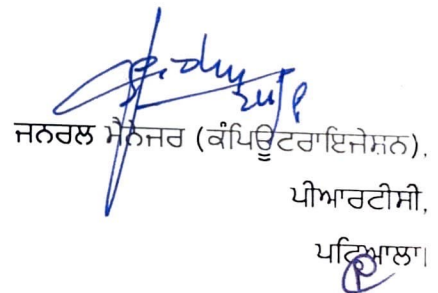 ਜਨਰਲ ਮੈਨੇਜਰ (ਕੰਪਿਊਟਰਾਇਜੇਸ਼ਨ),
ਪੀਆਰਟੀਸੀ,
ਪਟਿਆਲਾ।